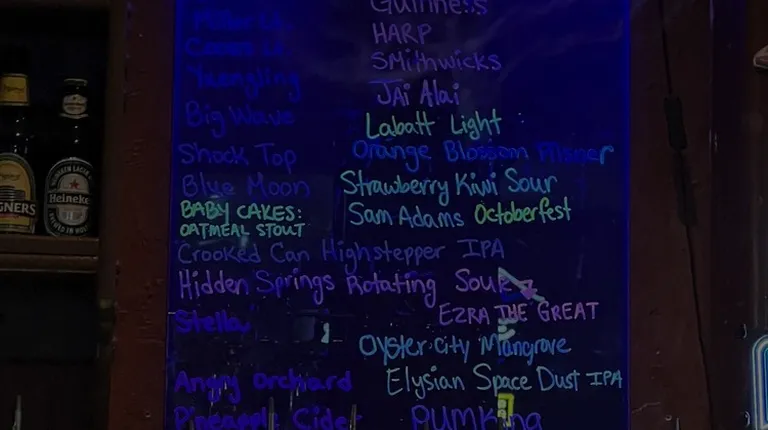 Guinness
HARP
Smithwicks
Yuengling
JAi Alai
Big Wave
Labatt Light
Shock Top
Orange Blossom Pilsner
Blue Moon
Strawberry Kiwi Sour
BABY CAKES:
OATMEAL STOUT
Sam Adams Octoberfest
Crooked Can Highstepper IPA
Hidden Springs Rotating Sour
EZRA THE GREAT
Stella
Oyster City Mangrove
Angry Orchard
Elysian Space Dust IPA
Pineapple Cider
PUMKing
GNERS
Heineken